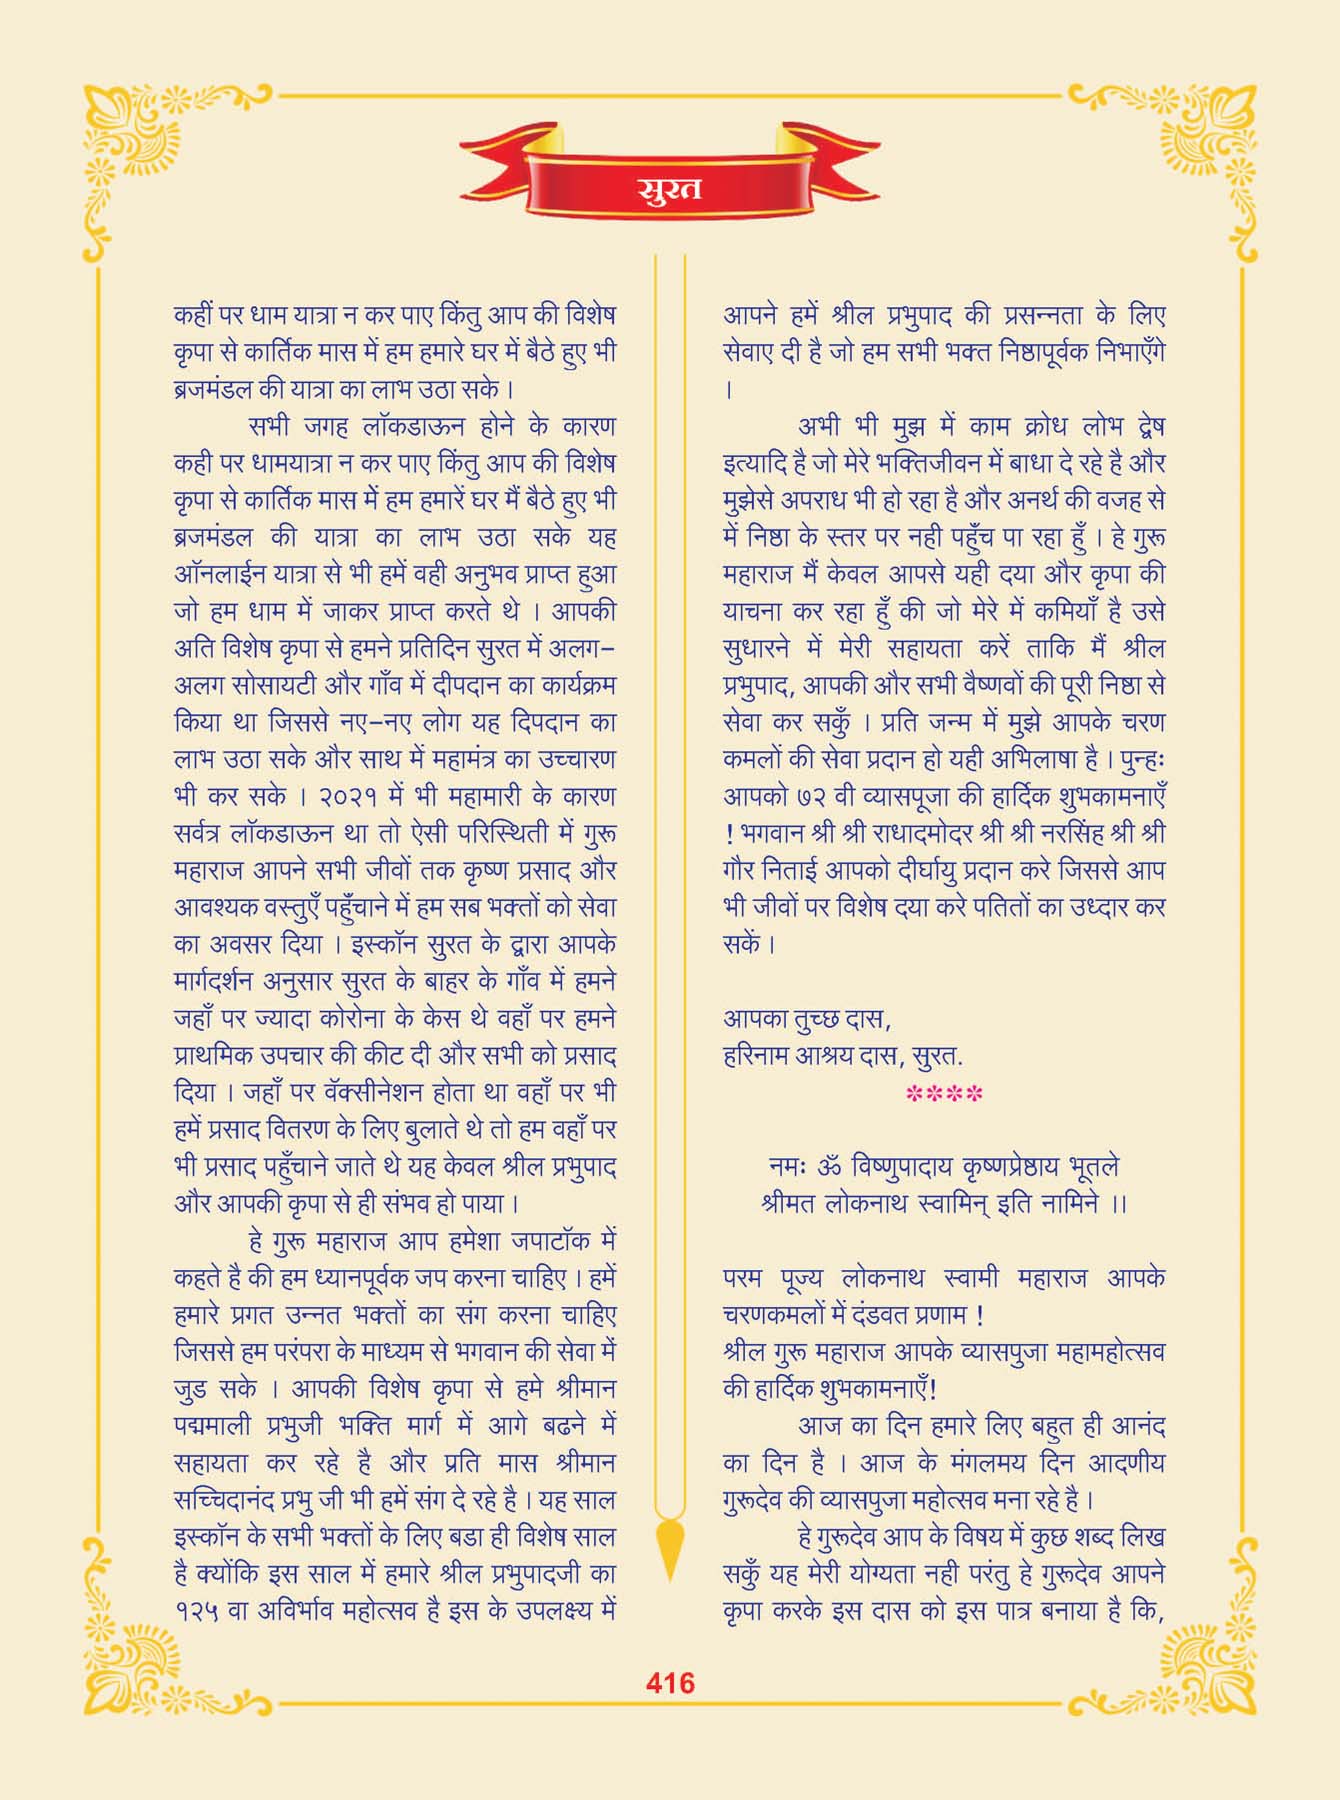 सुरत
कहीं पर धाम यात्रा न कर पाए किंतु आप की विशेष
कृपा से कार्तिक मास में हम हमारे घर में बैठे हुए भी
ब्रजमंडल की यात्रा का लाभ उठा सके ।
सभी जगह लॉकडाऊन होने के कारण
कही पर धामयात्रा न कर पाए किंतु आप की विशेष
कृपा से कार्तिक मास में हम हमारें घर मैं बैठे हुए भी
ब्रजमंडल की यात्रा का लाभ उठा सके यह
ऑनलाईन यात्रा से भी हमें वही अनुभव प्राप्त हुआ
जो हम धाम में जाकर प्राप्त करते थे । आपकी
अति विशेष कृपा से हमने प्रतिदिन सुरत में अलग-
अलग सोसायटी और गाँव में दीपदान का कार्यक्रम
किया था जिससे नए-नए लोग यह दिपदान का
लाभ उठा सके और साथ में महामंत्र का उच्चारण
भी कर सके । २०२१ में भी महामारी के कारण
सर्वत्र लॉकडाऊन था तो ऐसी परिस्थिती में गुरू
महाराज आपने सभी जीवों तक कृष्ण प्रसाद और
आवश्यक वस्तुएँ पहुँचाने में हम सब भक्तों को सेवा
का अवसर दिया । इस्कॉन सुरत के द्वारा आपके
मार्गदर्शन अनुसार सुरत के बाहर के गाँव में हमने
जहाँ पर ज्यादा कोरोना के केस थे वहाँ पर हमने
प्राथमिक उपचार की कीट दी और सभी को प्रसाद
दिया । जहाँ पर वॅक्सीनेशन होता था वहाँ पर भी
हमें प्रसाद वितरण के लिए बुलाते थे तो हम वहाँ पर
भी प्रसाद पहुँचाने जाते थे यह केवल श्रील प्रभुपाद
और आपकी कृपा से ही संभव हो पाया ।
हे गुरू महाराज आप हमेशा जपाटॉक में
कहते है की हम ध्यानपूर्वक जप करना चाहिए । हमें
हमारे प्रगत उन्नत भक्तों का संग करना चाहिए
जिससे हम परंपरा के माध्यम से भगवान की सेवा में
जुड सके । आपकी विशेष कृपा से हमे श्रीमान
पद्ममाली प्रभुजी भक्ति मार्ग में आगे बढने में
सहायता कर रहे है और प्रति मास श्रीमान
सच्चिदानंद प्रभु जी भी हमें संग दे रहे है । यह साल
इस्कॉन के सभी भक्तों के लिए बडा ही विशेष साल
है क्योंकि इस साल में हमारे श्रील प्रभुपादजी का
१२५ वा अविर्भाव महोत्सव है इस के उपलक्ष्य में
आपने हमें श्रील प्रभुपाद की प्रसन्नता के लिए
सेवाए दी है जो हम सभी भक्त निष्ठापूर्वक निभाएँगे
।
अभी भी मुझ में काम क्रोध लोभ द्वेष
इत्यादि है जो मेरे भक्तिजीवन में बाधा दे रहे है और
मुझेसे अपराध भी हो रहा है और अनर्थ की वजह से
में निष्ठा के स्तर पर नही पहुँच पा रहा हुँ । हे गुरू
महाराज मैं केवल आपसे यही दया और कृपा की
याचना कर रहा हुँ की जो मेरे में कमियाँ है उसे
सुधारने में मेरी सहायता करें ताकि मैं श्रील
प्रभुपाद, आपकी और सभी वैष्णवों की पूरी निष्ठा से
सेवा कर सकुँ । प्रति जन्म में मुझे आपके चरण
कमलों की सेवा प्रदान हो यही अभिलाषा है । पुन्हः
आपको ७२ वी व्यासपूजा की हार्दिक शुभकामनाएँ
! भगवान श्री श्री राधादमोदर श्री श्री नरसिंह श्री श्री
गौर निताई आपको दीर्घायु प्रदान करे जिससे आप
भी जीवों पर विशेष दया करे पतितों का उध्दार कर
सकें ।
आपका तुच्छ दास,
हरिनाम आश्रय दास, सुरत.
****
नमः ॐ विष्णुपादाय कृष्णप्रेष्ठाय भूतले
श्रीमत लोकनाथ स्वामिन् इति नामिने ।।
परम पूज्य लोकनाथ स्वामी महाराज आपके
चरणकमलों में दंडवत प्रणाम !
श्रील गुरू महाराज आपके व्यासपुजा महामहोत्सव
की हार्दिक शुभकामनाएँ!
आज का दिन हमारे लिए बहुत ही आनंद
का दिन है । आज के मंगलमय दिन आदणीय
गुरूदेव की व्यासपुजा महोत्सव मना रहे है ।
हे गुरूदेव आप के विषय में कुछ शब्द लिख
सकुँ यह मेरी योग्यता नही परंतु हे गुरूदेव आपने
कृपा करके इस दास को इस पात्र बनाया है कि,
416